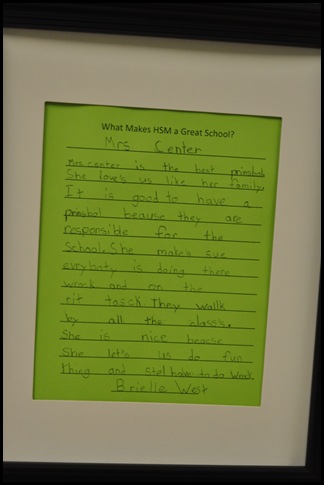 What Makes HSM a Great School?
Mrs Center
Mrs center is the best prinsbol
She love's us like her family.
It is good to have a
prinsbol beause they are
responsible for the
School. She make's sue
evryboty is doing there
wrock and on the
rit tasck. They wallk
by all the class's.
She is nice beacse
She let's us do fun
thing and stel have to do wrok.
Brielle West